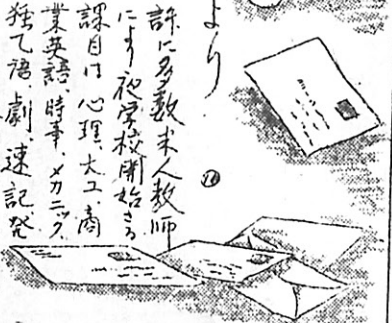 より
許に多数米人教師
により夜学校開始さる
課目は心理、大工、商
業英語、時事、メカニック、
独乙語、劇、速記、発